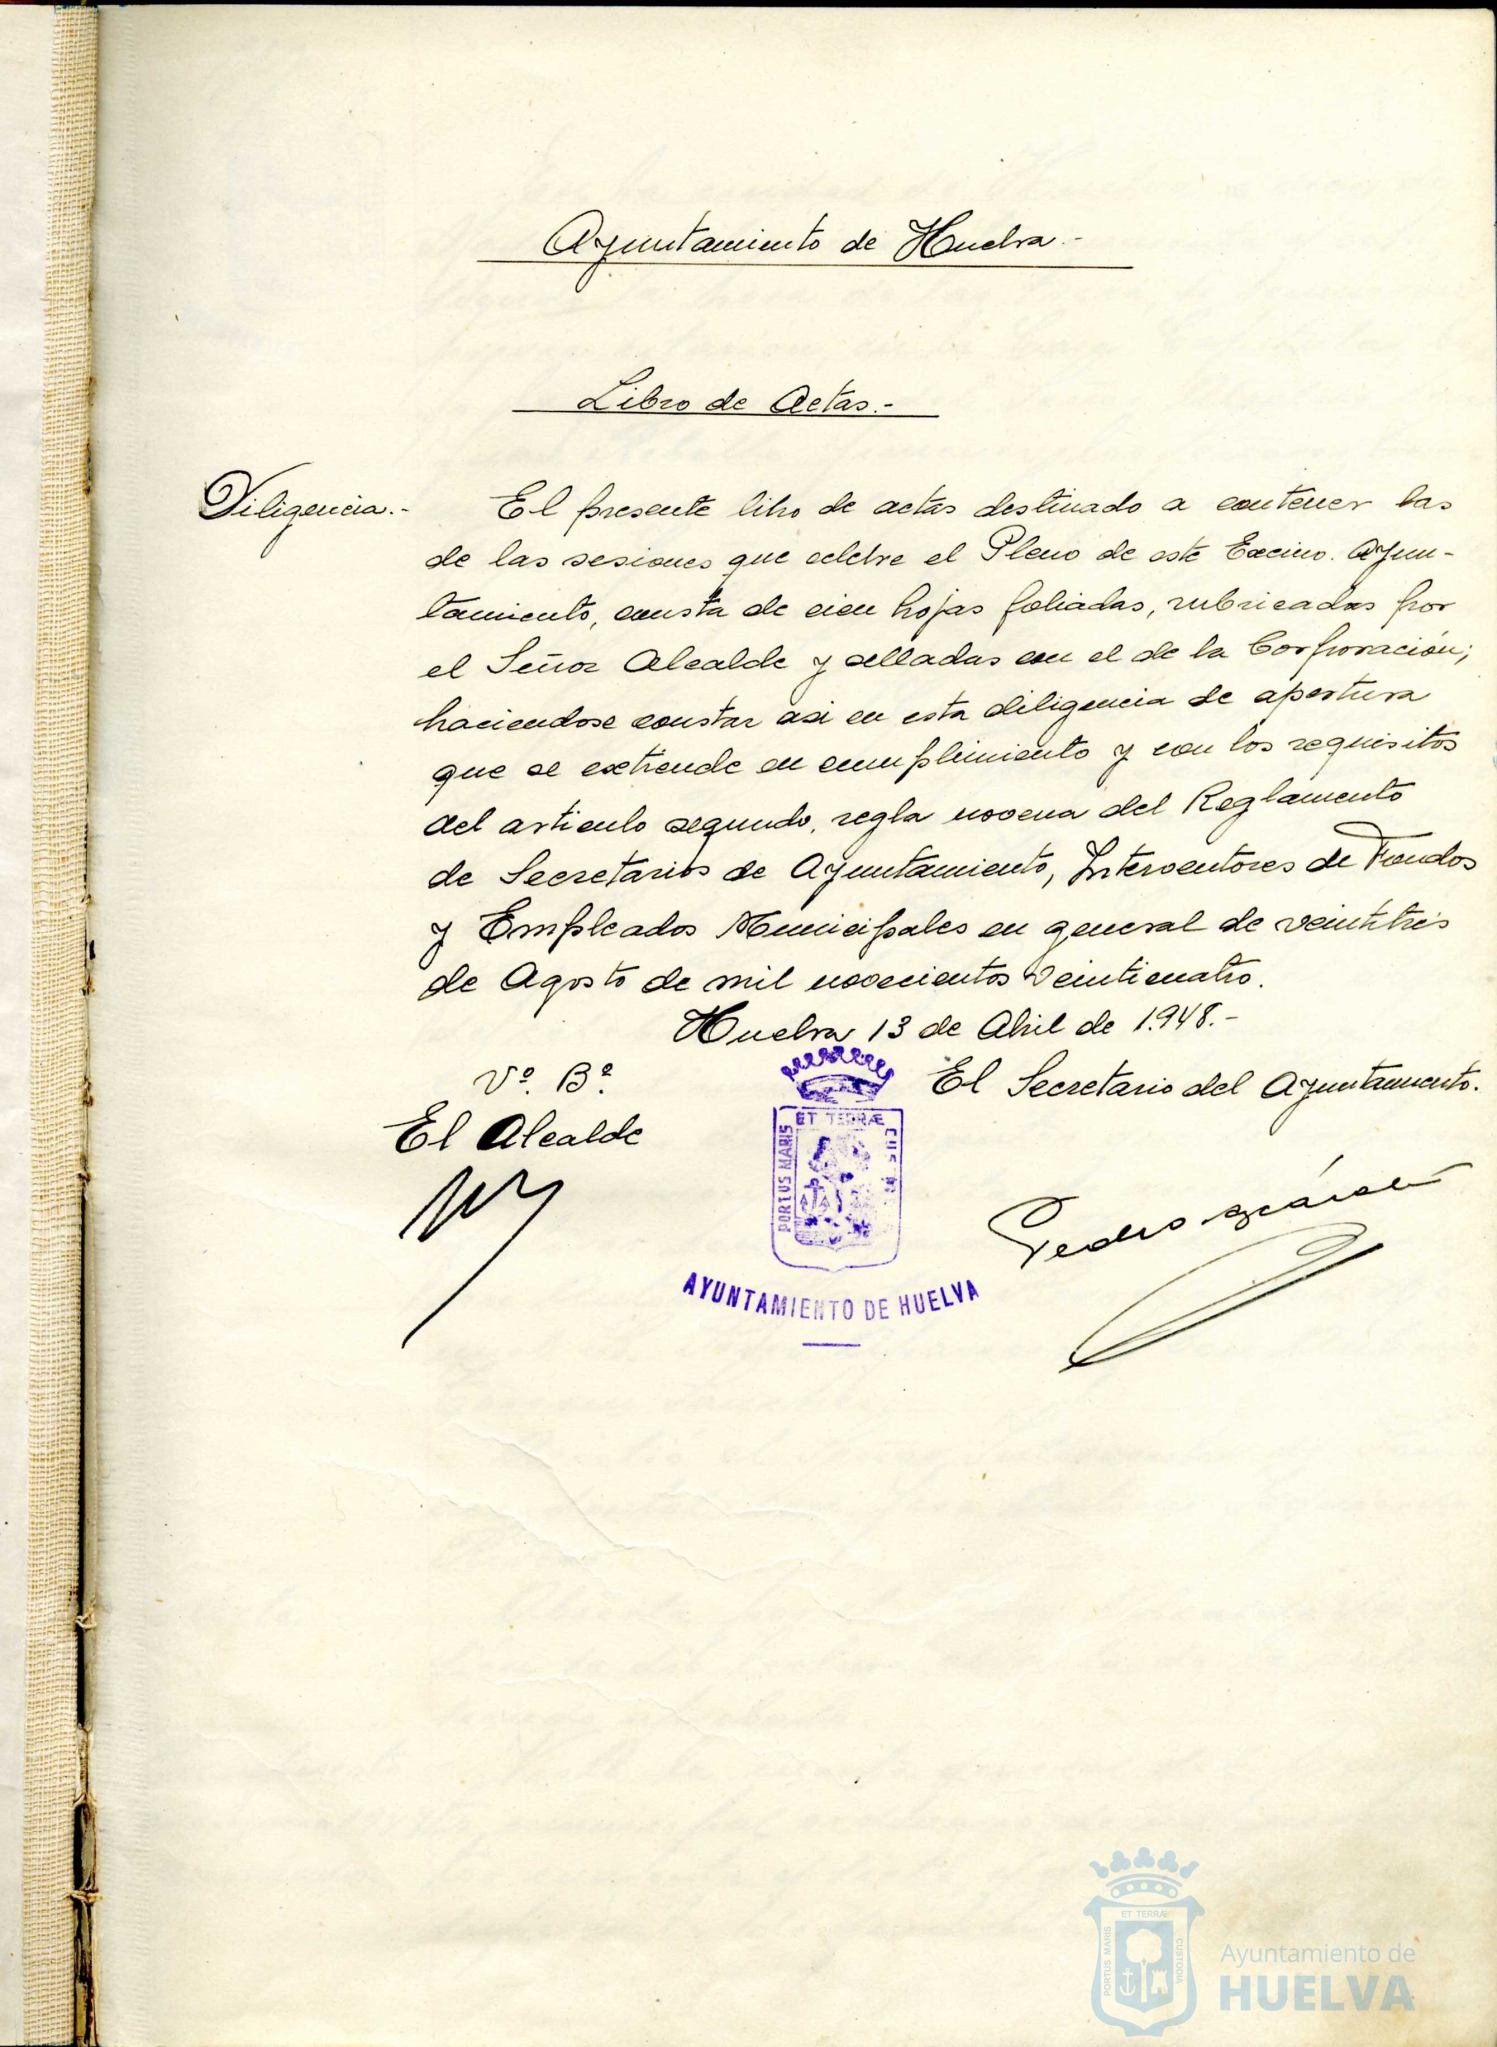 Ayuntamiento de Huelva.-
Libro de Actas.-
Diligencia.-
El presente libro de actas destinado a contener las
de las sesiones que celebre el Pleno de este Excmo. Ayun-
tamiento, consta de cien hojas foliadas, rubricadas por
el Señor Alcalde y selladas con el de la Corporación;
haciendose constar asi en esta diligencia de apertura
que se extiende en cumplimiento y con los requisitos
del articulo segundo, regla novena del Reglamento
de Secretarios de Ayuntamiento, Interventores de Fondos
y Empleados Municipales en general de veintitrés
de Agosto de mil novecientos veinticuatro.
Huelva 13 de Abril de 1.948.-
Vº. Bº.
El Alcalde
El Secretario del Ayuntamiento.
Pedro
ET TERRÆ
PORTUS MARIS
AYUNTAMIENTO DE HUELVA
ET TERRÆ
PORTUS MARIS
CUSTODIA
Ayuntamiento de
HUELVA